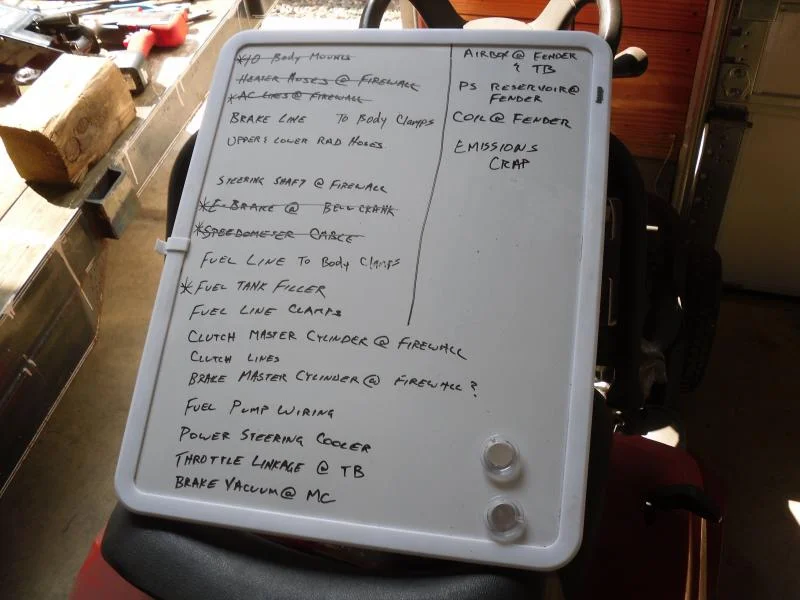 *10 Body Mounts
Heater Hoses @ Firewall
*AC Lines @ Firewall
Brake Line To Body Clamps
Upper & Lower Rad Hoses
Steering Shaft @ Firewall
*E-Brake @ Bellcrank
*Speedometer Cable
Fuel Line To Body Clamps
*Fuel Tank Filler
Fuel Line Clamps
Clutch Master Cylinder @ Firewall
Clutch Lines
Brake Master Cylinder @ Firewall?
Fuel Pump Wiring
Power Steering Cooler
Throttle Linkage @ TB
Brake Vacuum @ MC
Airbox @ Fender
& TB
PS Reservoir @
Fender
Coil @ Fender
Emissions
Crap